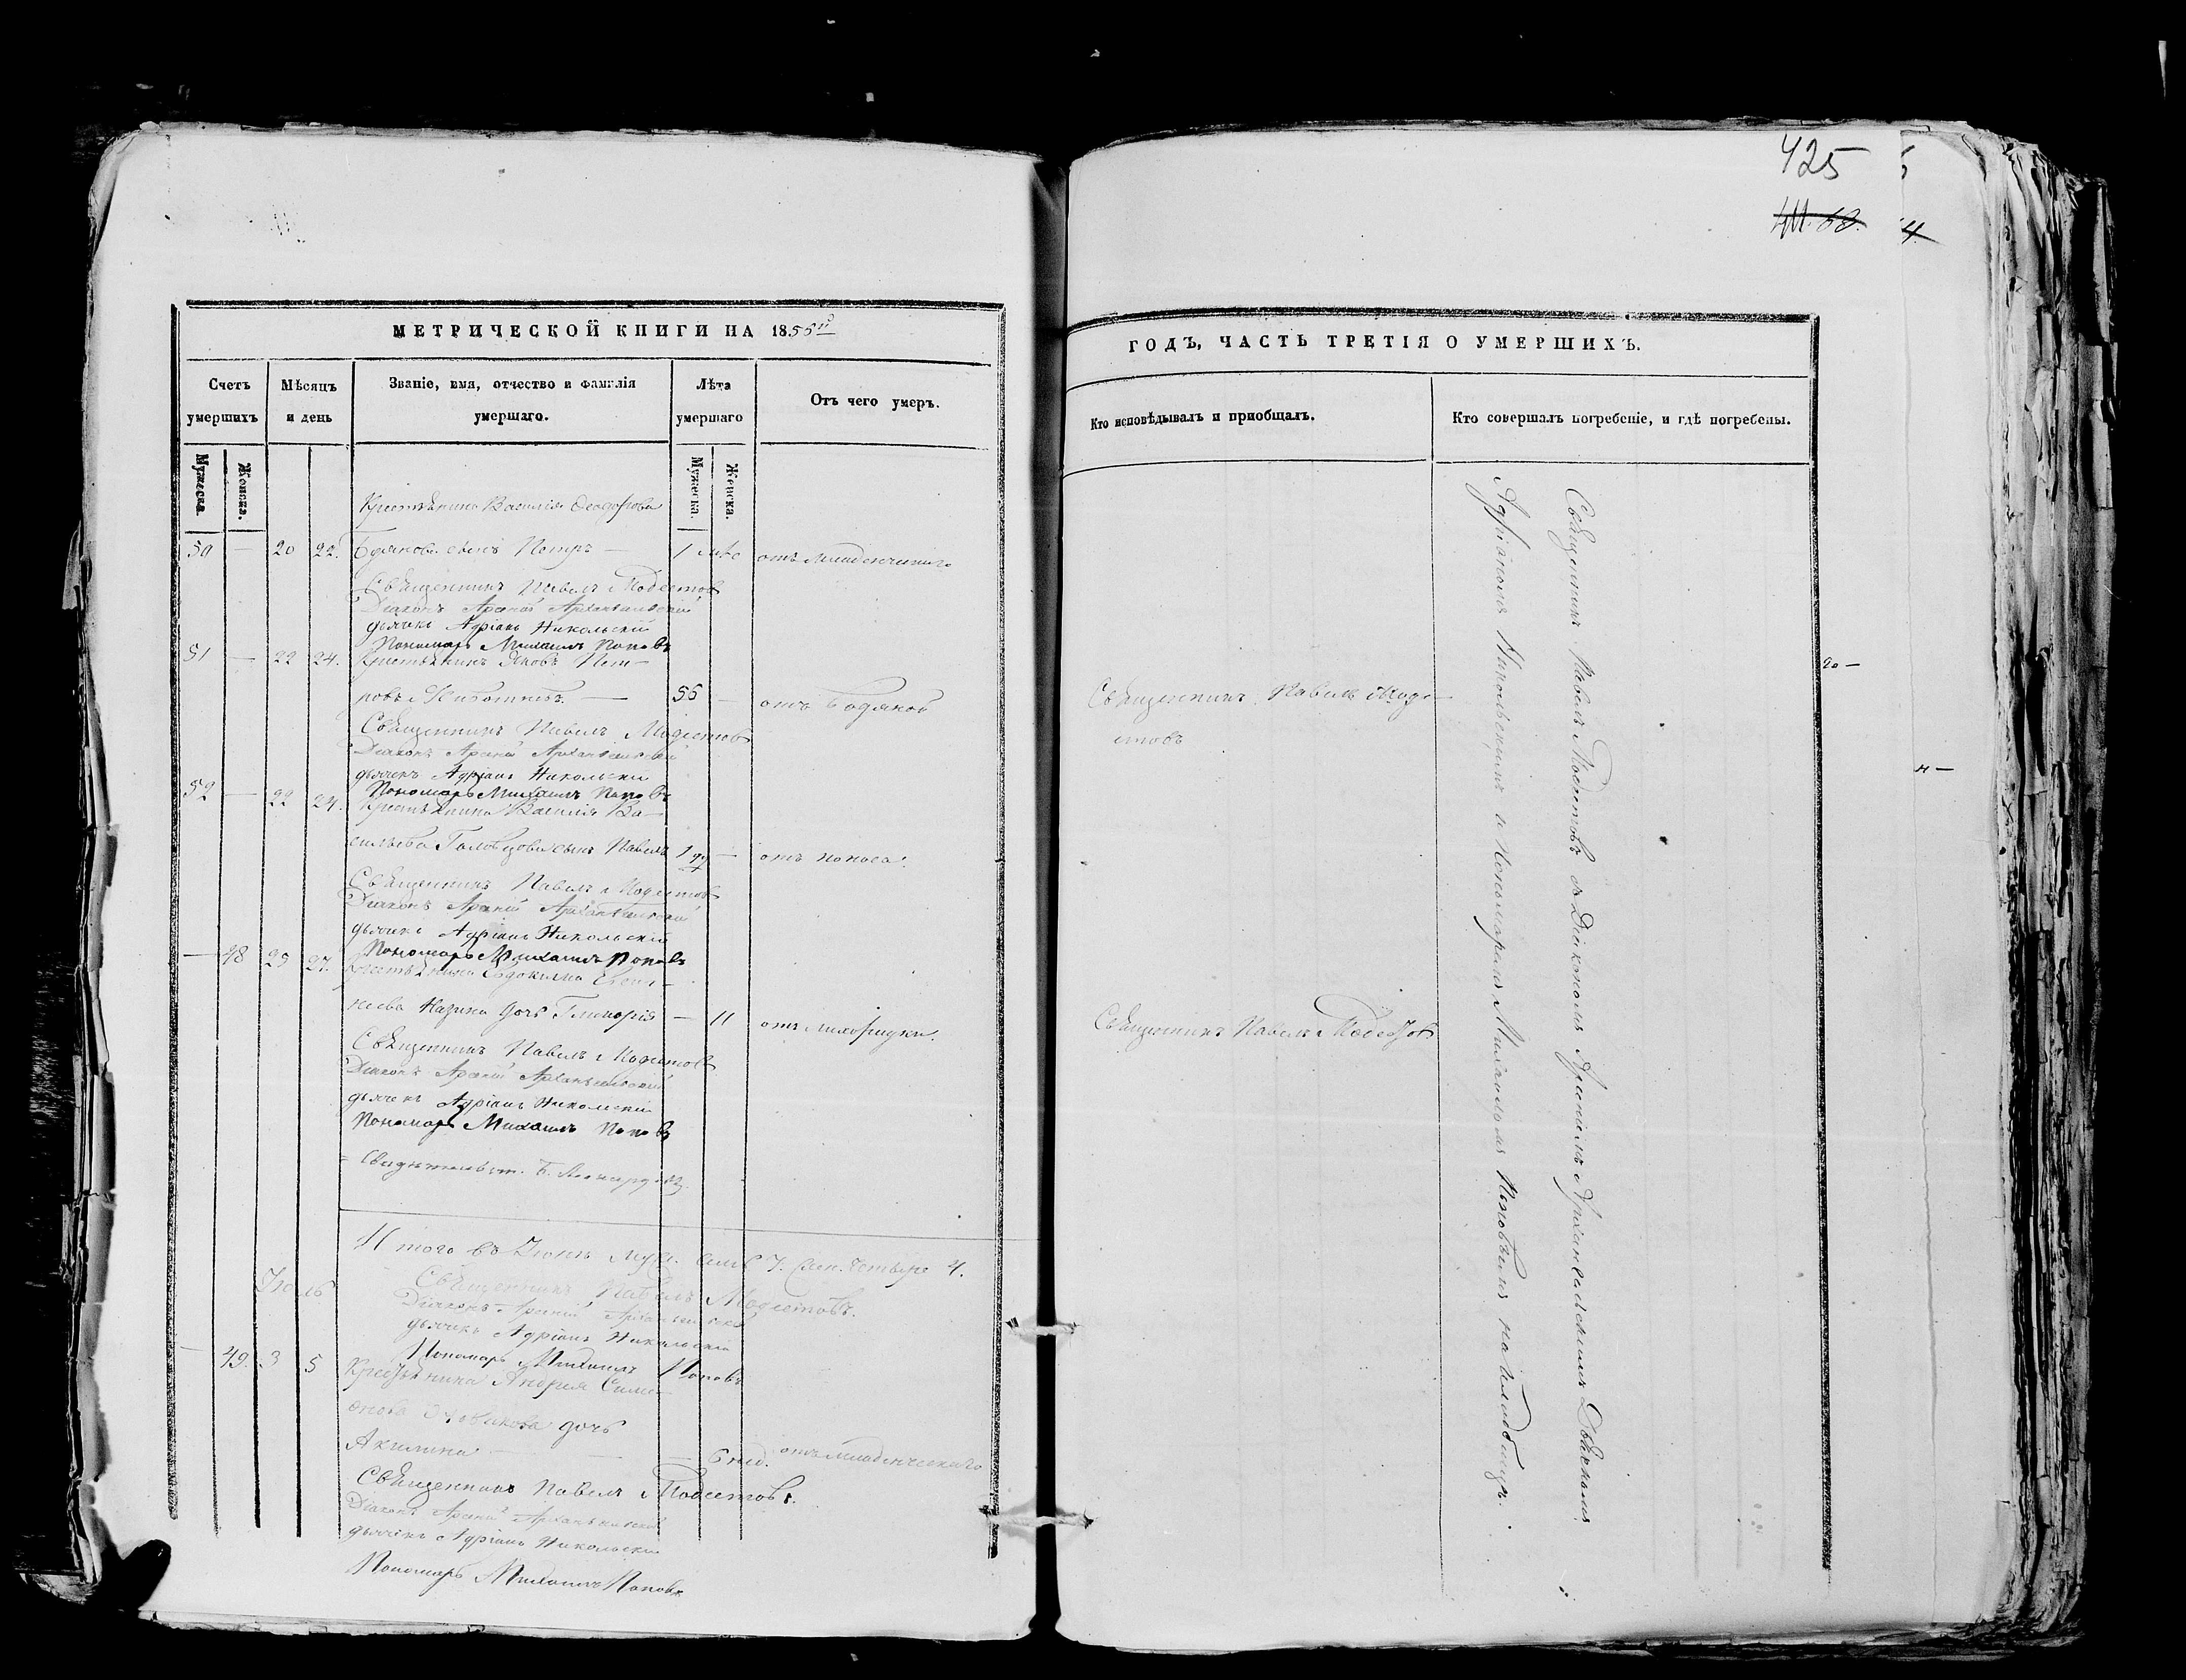 МЕТРИЧЕСКОЙ КНИГИ НА 1855й
Счетъ умершихъ
Мѣсяцъ и день
Званіе, имя, отчество и фамилія умершаго.
Лѣта умершаго
Отъ чего умеръ.
Мужеска.
Женска.
Мужеска.
Женска.
Крестьянина Василія Ѳеодорова
50 — 20 22. сынъ Петръ — 1 отъ младенческаго
Священникъ Павелъ Модестовъ
Діаконъ Арсеній Архангельскій
дьячекъ Адріанъ Никольскій
Пономарь Михаилъ Поповъ
51 — 22 24. Крестьянинъ Яковъ Пет-
ровъ — 56 — отъ
Священникъ Павелъ Модестовъ
Діаконъ Арсеній Архангельскій
дьячекъ Адріанъ Никольскій
Пономарь Михаилъ Поповъ
52 — 22 24. Крестьянина Василія Ва-
сильева сынъ Павелъ 1 — отъ поноса.
Священникъ Павелъ Модестовъ
Діаконъ Арсеній Архангельскій
дьячекъ Адріанъ Никольскій
Пономарь Михаилъ Поповъ
— 48 25 27. Крестьянина Евдокима
дочь Гликерія — 11 отъ лихорадки.
Священникъ Павелъ Модестовъ
Діаконъ Арсеній Архангельскій
дьячекъ Адріанъ Никольскій
Пономарь Михаилъ Поповъ
Итого въ Іюнѣ муж. семь 7. жен. четыре 4.
Священникъ Павелъ Модестовъ.
Діаконъ Арсеній Архангельскій
дьячекъ Адріанъ Никольскій
Пономарь Михаилъ Поповъ
— 49. 3 5 Крестьянина Андрея Симе-
онова дочь
Акилина — — 6 нед. отъ младенческаго
Священникъ Павелъ Модестовъ.
Діаконъ Арсеній Архангельскій
дьячекъ Адріанъ Никольскій
Пономарь Михаилъ Поповъ
425
4.
ГОДЪ, ЧАСТЬ ТРЕТІЯ О УМЕРШИХЪ.
Кто исповѣдывалъ и пріобщалъ.
Кто совершалъ погребеніе, и гдѣ погребены.
Священникъ Павелъ Моде-
стовъ
Священникъ Павелъ Модестовъ
Священникъ Павелъ Модестовъ съ Діакономъ Арсеніемъ Архангельскимъ Дьячкомъ
Адріаномъ Никольскимъ и Пономаремъ Михаиломъ Поповымъ на кладбищѣ.